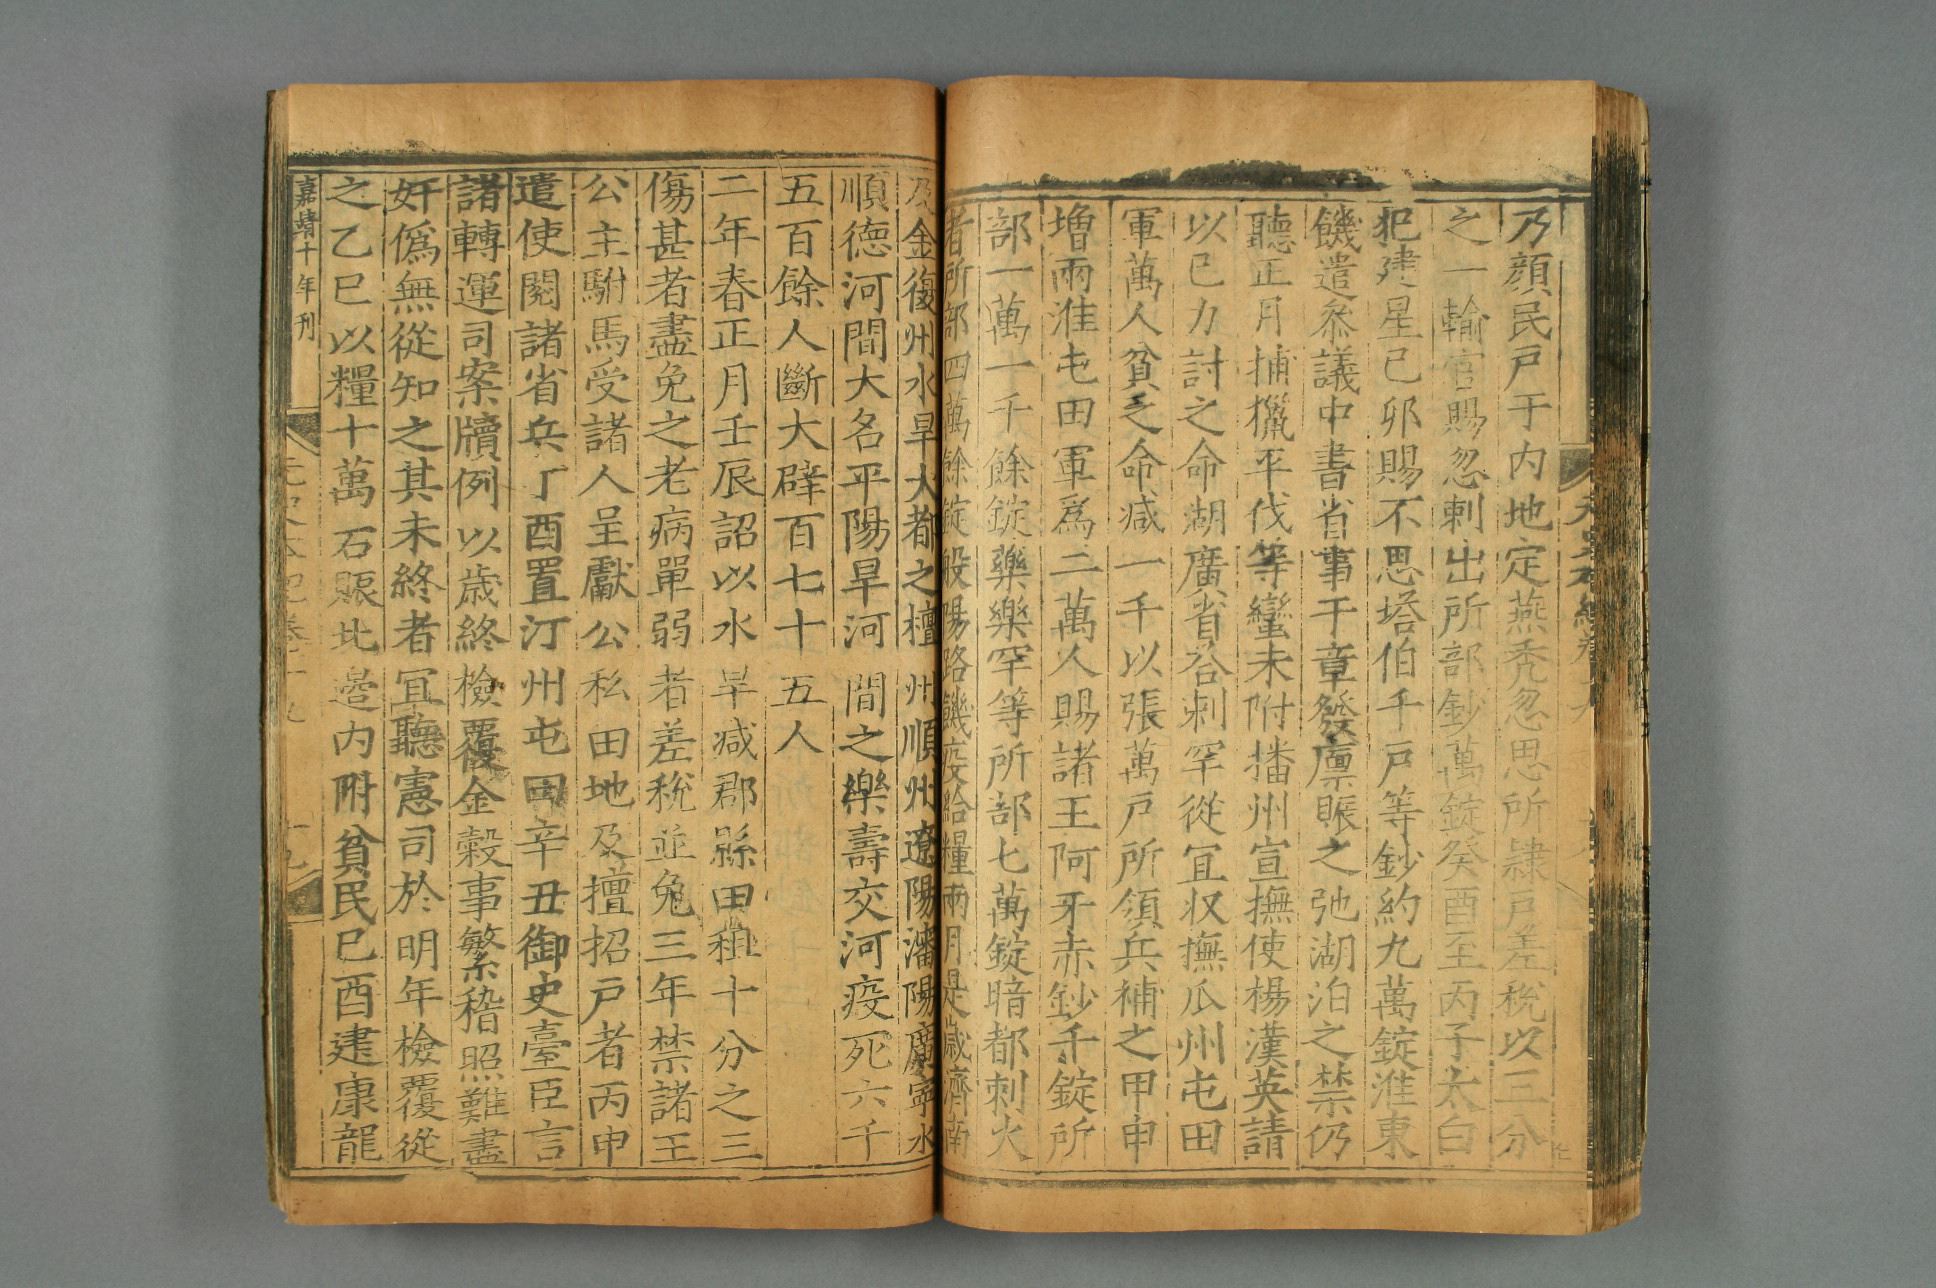 乃顔民戸于内地定燕禿忽思所隸戸差税以三分
之一輸官賜忽剌出所部鈔萬錠癸酉至丙子太白
犯建星己卯賜不思塔伯千戸等鈔約九萬錠淮東
饑遣參議中書省事于章發廪賑之弛湖泊之禁仍
聽正月捕獵平伐等蠻未附播州宣撫使楊漢英請
以己力討之命湖廣省荅剌罕從宜収撫瓜州屯田
軍萬人貧乏命减一千以張萬戸所領兵補之甲申
増兩淮屯田軍爲二萬人賜諸王阿牙赤鈔千錠所
部一萬一千餘錠藥樂罕等所部七萬錠暗都剌火
者所部四萬餘錠般陽路饑疫給糧兩月是歳濟南
及金復州水旱大都之檀州順州遼陽瀋陽廣寧水
順德河間大名平陽旱河間之樂壽交河疫死六千
五百餘人斷大辟百七十五人
二年春正月壬辰詔以水旱减郡縣田租十分之三
傷甚者盡免之老病單弱者差税並免三年禁諸王
公主駙馬受諸人呈獻公私田地及擅招戸者丙申
遣使閱諸省兵丁酉置汀州屯田辛丑御史臺臣言
諸轉運司案牘例以歳終檢覆金穀事繁稽照難盡
奸僞無從知之其未終者宜聽憲司於明年檢覆從
之乙巳以糧十萬石賑北邉内附貧民己酉建康龍
嘉靖十年刊
元史本紀卷十九
十九